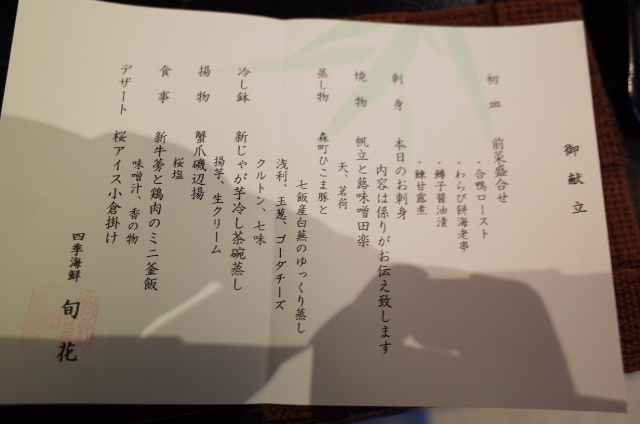 御献立
初皿 前菜盛合せ
・合鴨ロースト
・わらび餅海老串
・鱒子醤油漬
・鰊甘露煮
刺身 本日のお刺身
内容は係りがお伝え致します
焼物 帆立と蕗味噌田楽
天、茗荷
蒸し物 森町ひこま豚と
七飯産白蕪のゆっくり蒸し
浅利、玉葱、ゴーダチーズ
クルトン、七味
冷し鉢 新じゃが芋冷し茶碗蒸し
揚芋、生クリーム
揚物 蟹爪磯辺揚
桜塩
食事 新牛蒡と鶏肉のミニ釜飯
味噌汁、香の物
デザート 桜アイス小倉掛け
四季海鮮 旬花